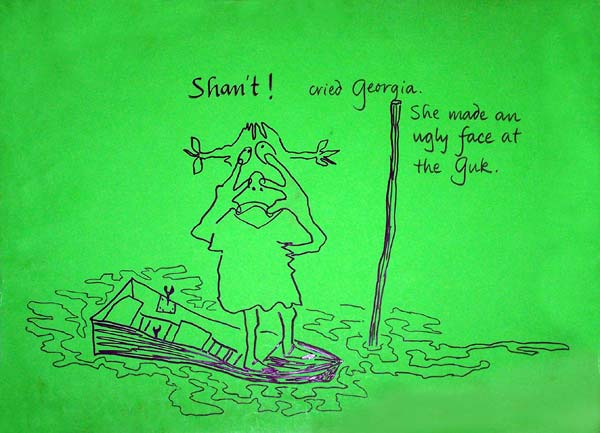 Shan't! cried Georgia.
She made an
ugly face at
the Guk.